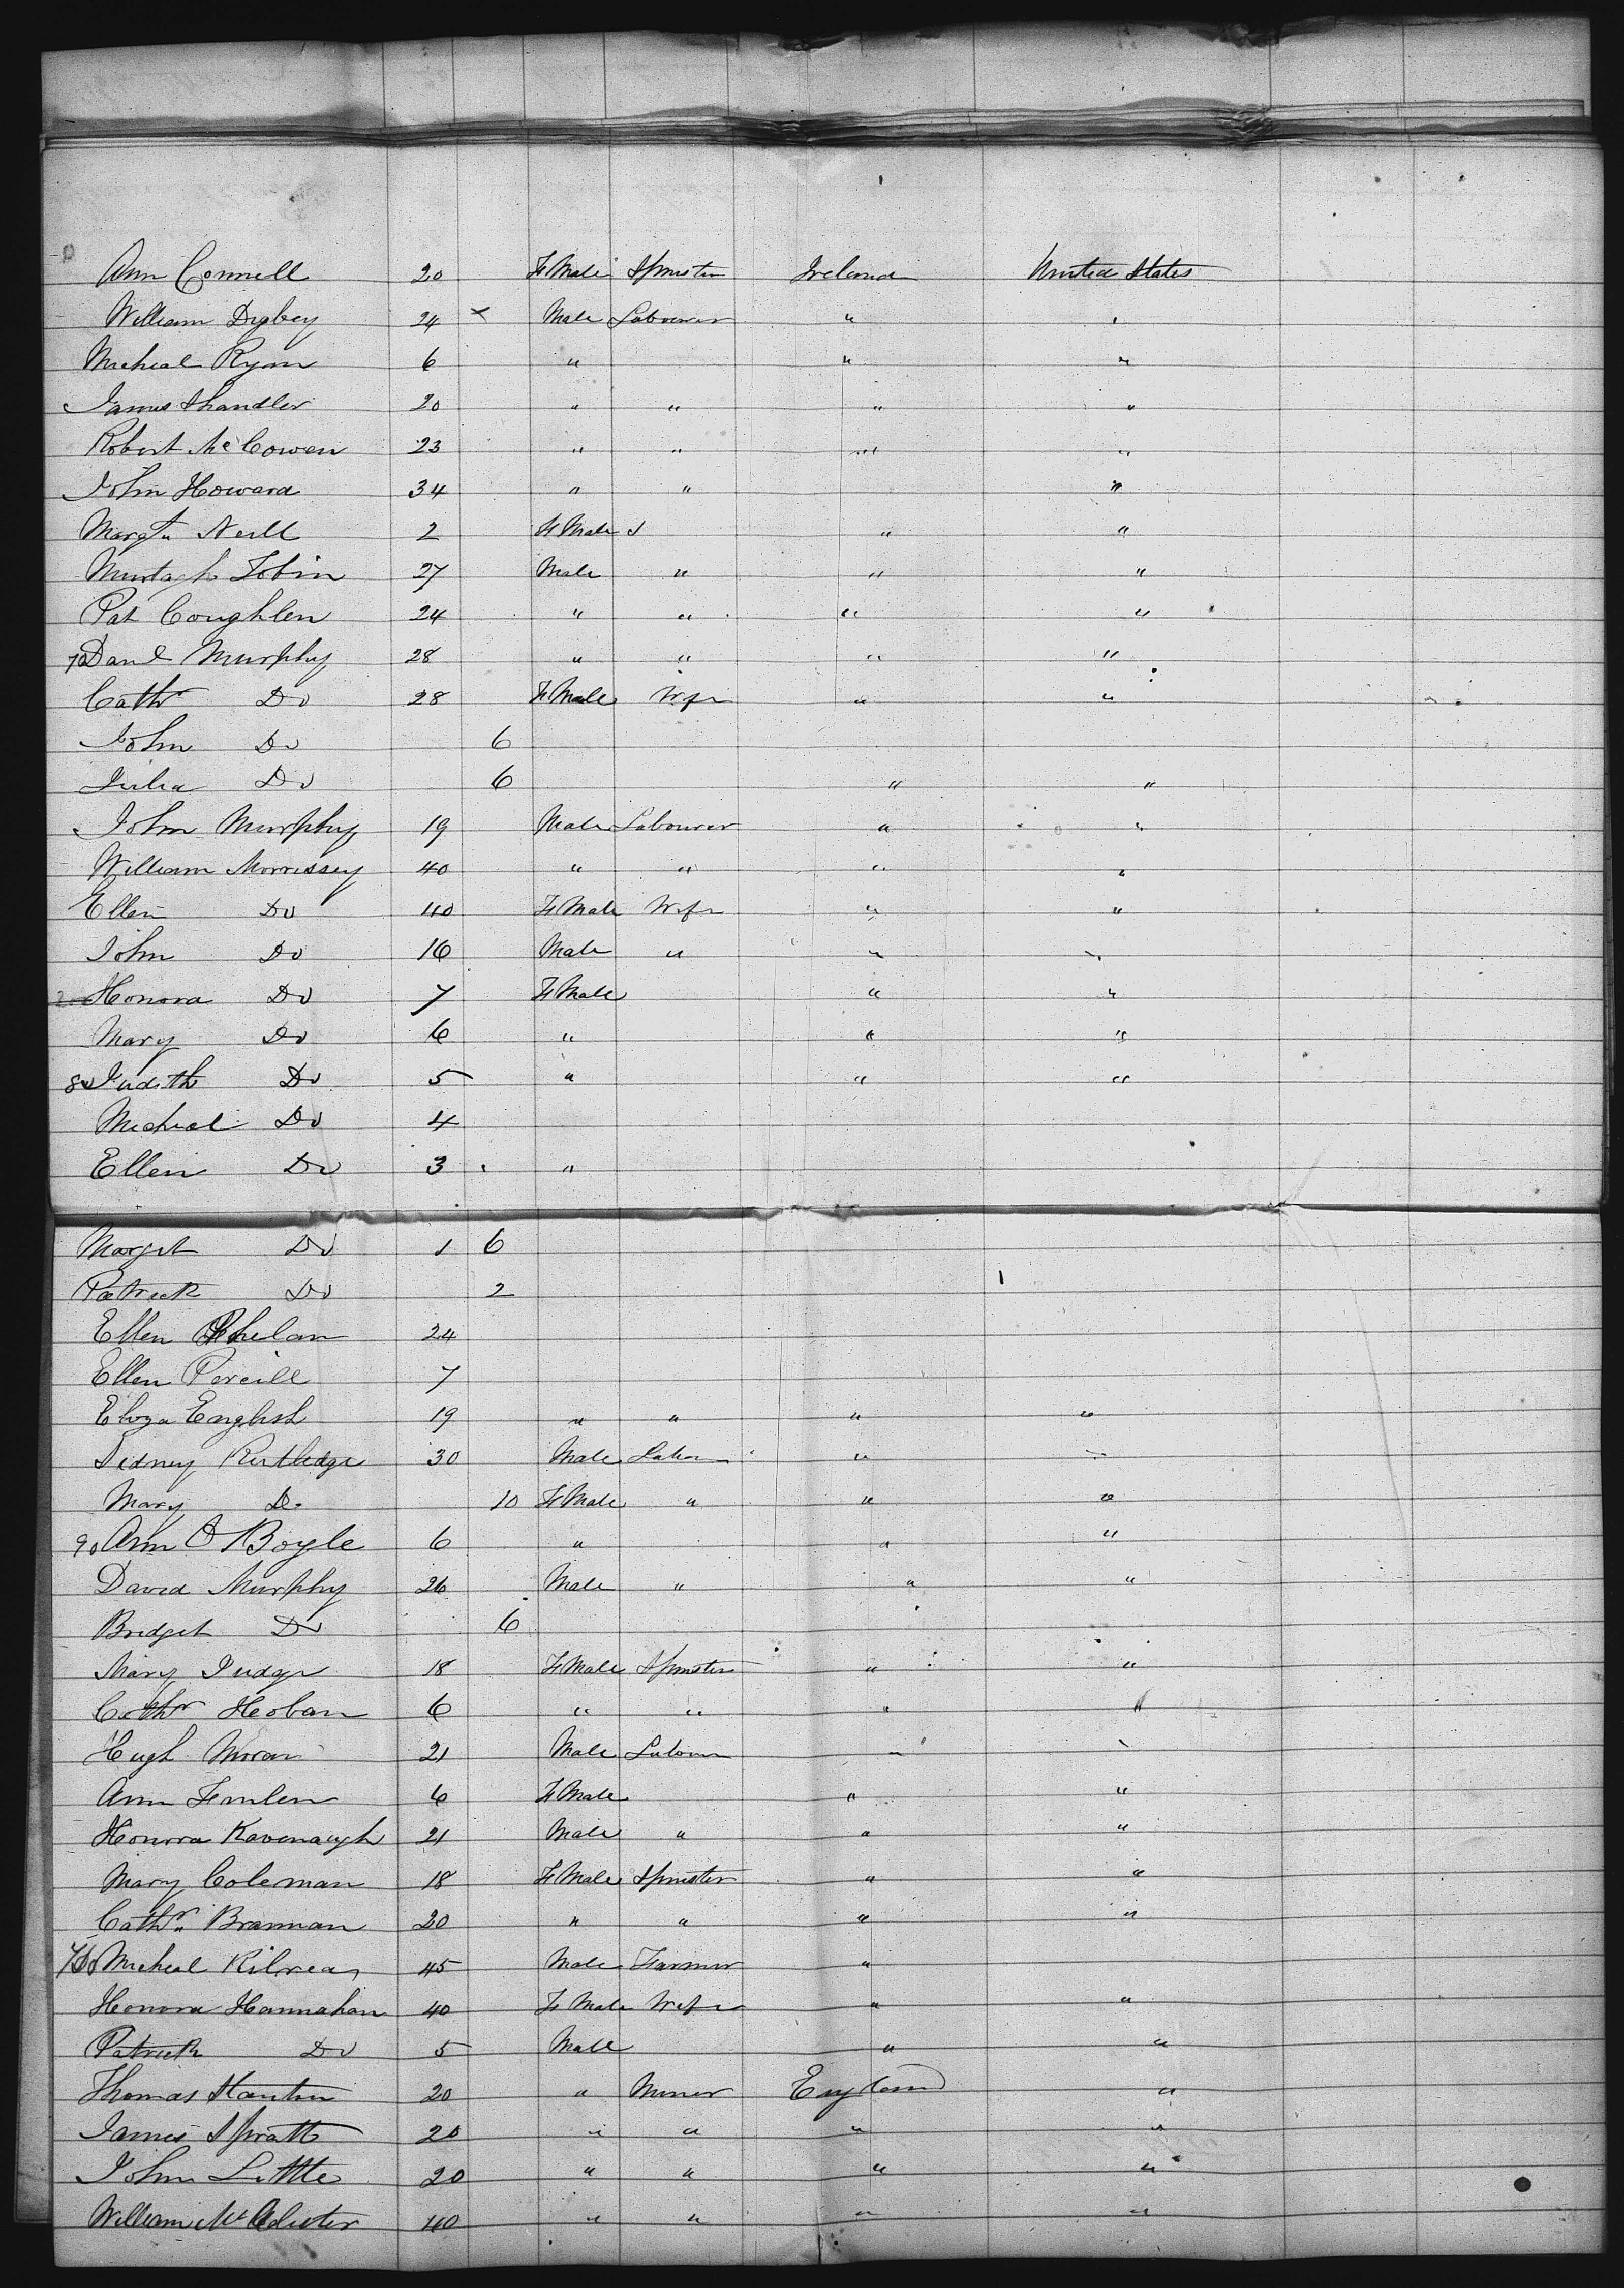 Ann Connell 20 FMale Spinster Ireland United States
William Digbey 24 x Male Labourer " "
Micheal Ryan 6 " " "
James Shandler 20 " " " "
Robert McCowen 23 " " " "
John Howard 34 " " "
Margt Neill 2 FMale " "
Murtagh Tobin 27 Male " " "
Pat Coughlen 24 " " " "
70 Danl Murphy 28 " " " "
Cathr Do 28 FMale Wife " "
John Do 6
Julia Do 6 " "
John Murphy 19 Male Labourer " "
William Morrissey 40 " " " "
Ellen Do 40 FMale Wife " "
John Do 16 Male " " "
Honora Do 7 FMale " "
Mary Do 6 " " "
80 Judith Do 5 " " "
Micheal Do 4
Ellen Do 3 "
Marget Do 1 6
Patrick Do 2
Ellen Phelan 24
Ellen 7
Eliza English 19 " " " "
Sidney Rutledge 30 Male Labor " "
Mary Do 10 FMale " " "
90 Ann O Boyle 6 " " "
David Murphy 26 Male " " "
Bridget Do 6
Mary Judge 18 FMale Spinster " "
Cathr Hoban 6 " " " "
Hugh Moran 21 Male Labour " "
Ann 6 FMale " "
Honora Kavenaugh 21 Male " " "
Mary Coleman 18 FMale Spinster " "
Cathr Brannan 20 " " " "
Micheal Kilrea 45 Male Farmer "
Honora Hannahan 40 FMale Wife " "
Patrick Do 5 Male " "
Thomas 20 " Miner England "
James Spratt 20 " " " "
John Little 20 " " " "
William 40 " " " "